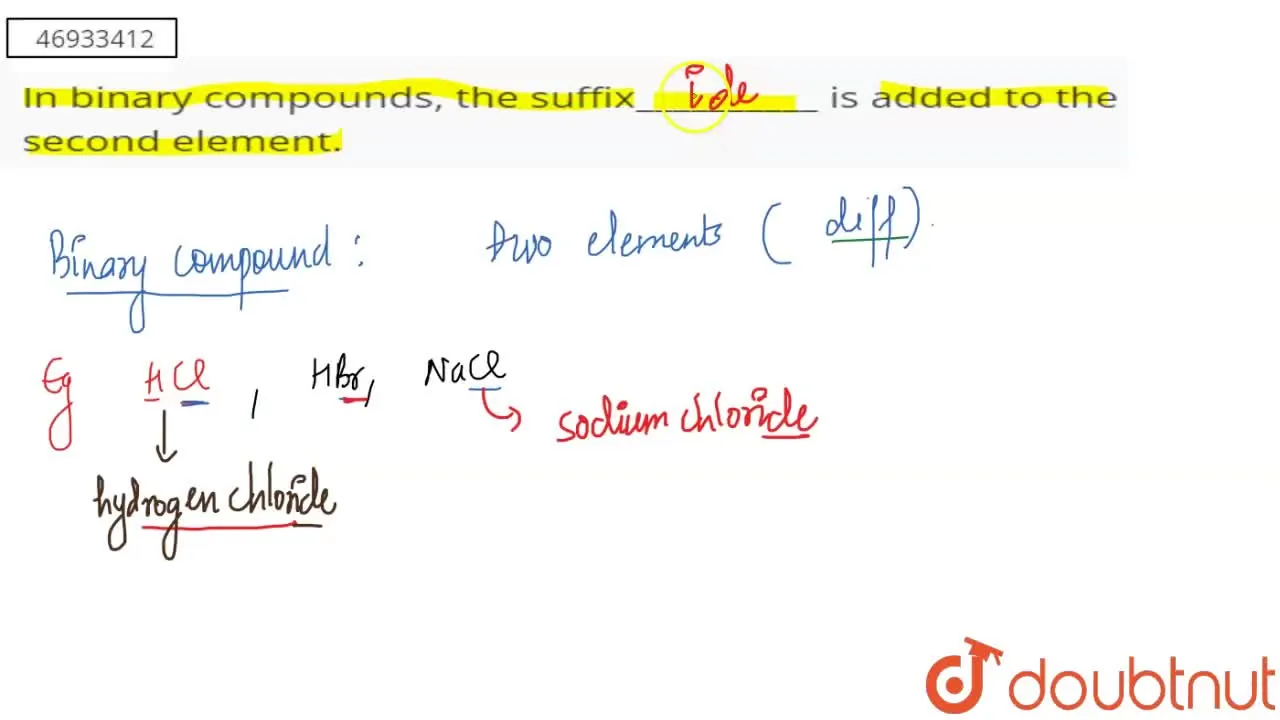 46933412
In binary compounds, the suffix ide is added to the
second element.
Binary compound : two elements ( diff ).
Eg HCl , HBr, NaCl
sodium chloride
hydrogen chloride
doubtnut